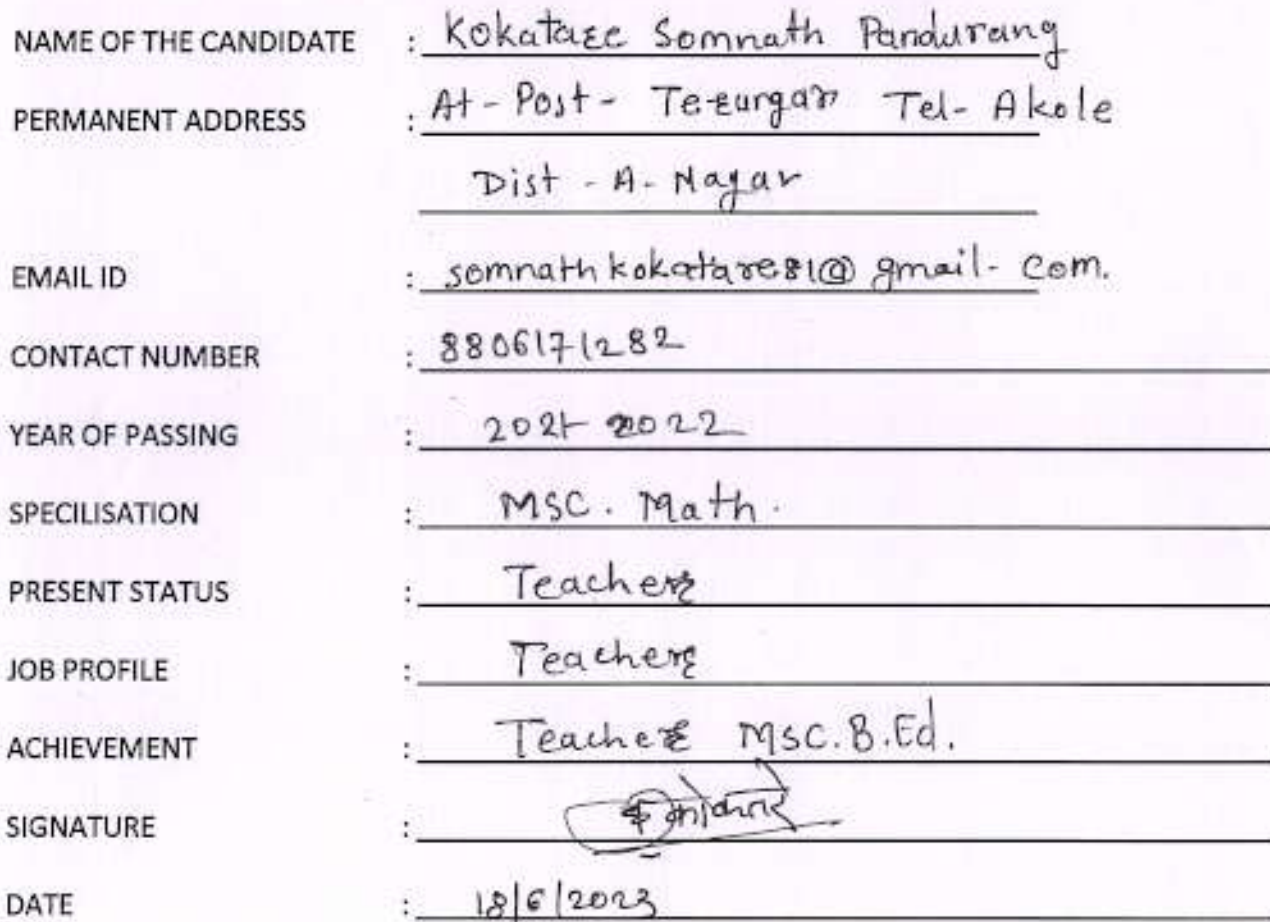 NAME OF THE CANDIDATE : Kokatare Somnath Pandurang
PERMANENT ADDRESS : At-Post- Tel- Akole
Dist - A. Nagar
EMAIL ID : somnathkokatare81@gmail. com.
CONTACT NUMBER : 8806171282
YEAR OF PASSING : 2021-2022
SPECILISATION : MSC. Math.
PRESENT STATUS : Teacher
JOB PROFILE : Teacher
ACHIEVEMENT : Teacher MSC.B.Ed.
SIGNATURE :
DATE : 18/6/2023